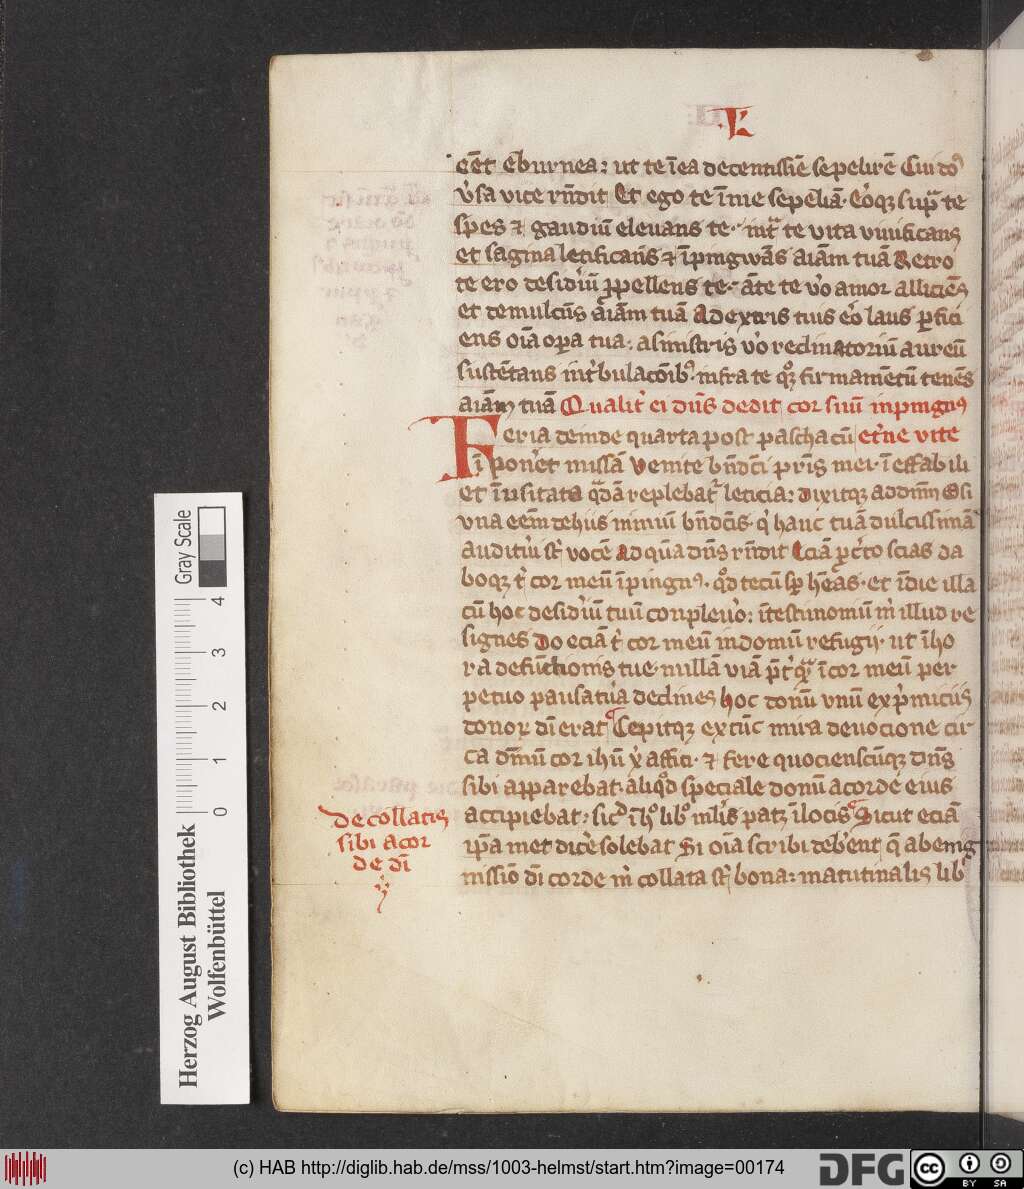 L
cēt eburnea: ut te ī ea decentissiē sepelirē Cui dn̄s
v̓sa vice rn̄dit Et ego te ī me sepeliā. Eo̓qꝫ sup̄ te
spes ⁊ gaudiū eleuans te. int̄ te vita viuificans
et sagina letificans ⁊ īpingwās aīam tuā Retro
te ero desid̓iū ꝓpellens te. āte te v̓o amor alliciēs
et demulcēs aīam tuā A dextris tuis ēo laus ꝑfici
ens oīa oꝑa tua. a sinistris v̓o reclinatoriū aureū
sustētans int̓bulacōibꝫ. infra te qꝫ firmamētū tenēs
aīam tuā Qualit̓ ei dn̄s dedit cor suū in pingn̓
Feria deinde quarta post pascha cū et̓ne vite
īponēt missā Venite bn̄dc̄i pr̄is mei. īeffabili
et īusitata qādā replebat̓ leticia: dixitqꝫ ad dn̄m O si
vna eēm de hiis nimiū bn̄dc̄is. q̓ hanc tuā dulcissimā
auditu̓i st̓ vocē Ad quā dn̄s rn̄dit Eciā ꝑ c̓to scias da
boqꝫ t̓ cor meū ī pingn̓. qd̓ tecū sp̄ hēas. et ī die illa
cū hoc desid̓iū tuū conpleuo̓: ī testimoniū m̓ illud re
signes Do eciā t̓ cor meū in domū refugii. ut ī ho
ra defūctionis tue. nullā viā p̄t̓q̄ ī cor meū per
petuo pausatura declines hoc donū vnū ex p̓miciis
donoꝝ dī erat Cepitqꝫ ex tūc mira deuocione cir
ca dīnū cor ihū xp̄i affici. ⁊ fere quociensc̄ūqꝫ dn̄s
sibi apparebat. aliqd̓ speciale donū a corde eius
accipiebat. sic̓ ī h̓ lib̓ ml̓is patꝫ ī locis Sicut eciā
ip̄a met dic̓e solebat Si oīa scribi deb̓ent q̄ a benig
nissio dī corde m̓ collata st̓ bona: matutinalis lib̓
de collatis
sibi a cor
de dī
Herzog August Bibliothek
Wolfenbüttel
0 1 2 3 4
Gray Scale
(c) HAB http://diglib.hab.de/mss/1003-helmst/start.htm?image=00174
DFG
cc
BY SA